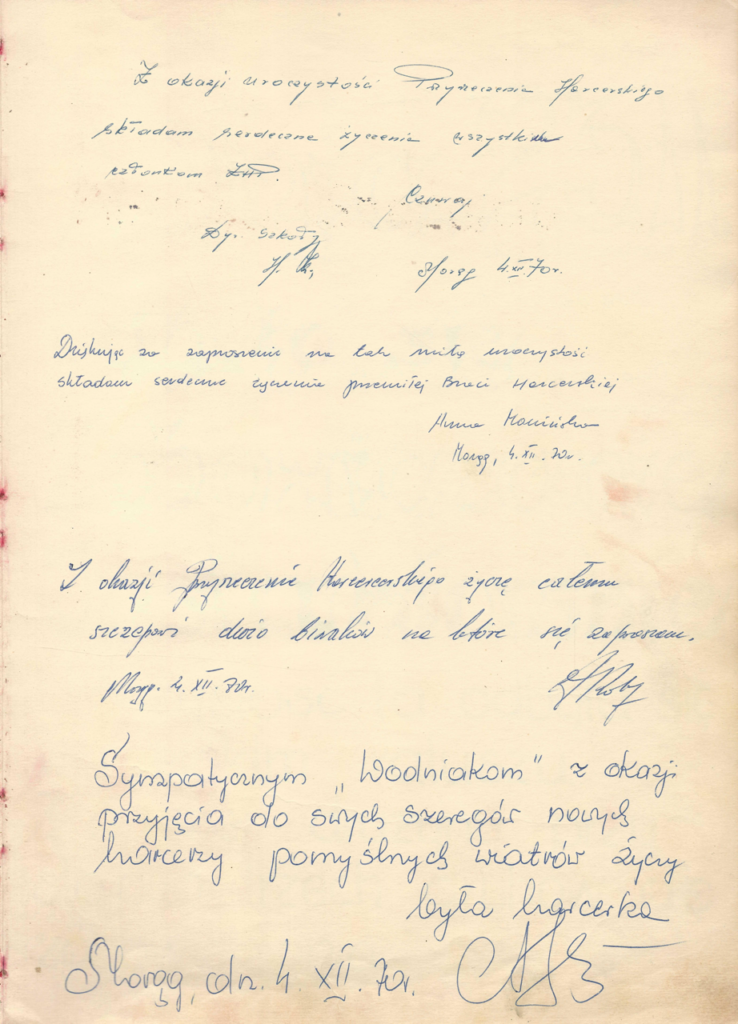 Z okazji uroczystości Przyrzeczenia Harcerskiego
składam serdeczne życzenia wszystkim
członkom ZHP.
Czuwaj
Dyr. Szkoły
Morąg 4.XII.70r.
Dziękując za zaproszenie na tak miłą uroczystość
składam serdeczne życzenia przemiłej Braci Harcerskiej
Anna
Morąg, 4.XII.70r.
Z okazji Przyrzeczenia Harcercerskiego życzę całemu
szczepowi dużo biwaków na które się zapraszam.
Morąg. 4.XII.70r.
Sympatycznym „Wodniakom" z okazji
przyjęcia do swych szeregów nowych
harcerzy pomyślnych wiatrów życzy
była harcerka
Morąg, dn. 4.XII.70r.